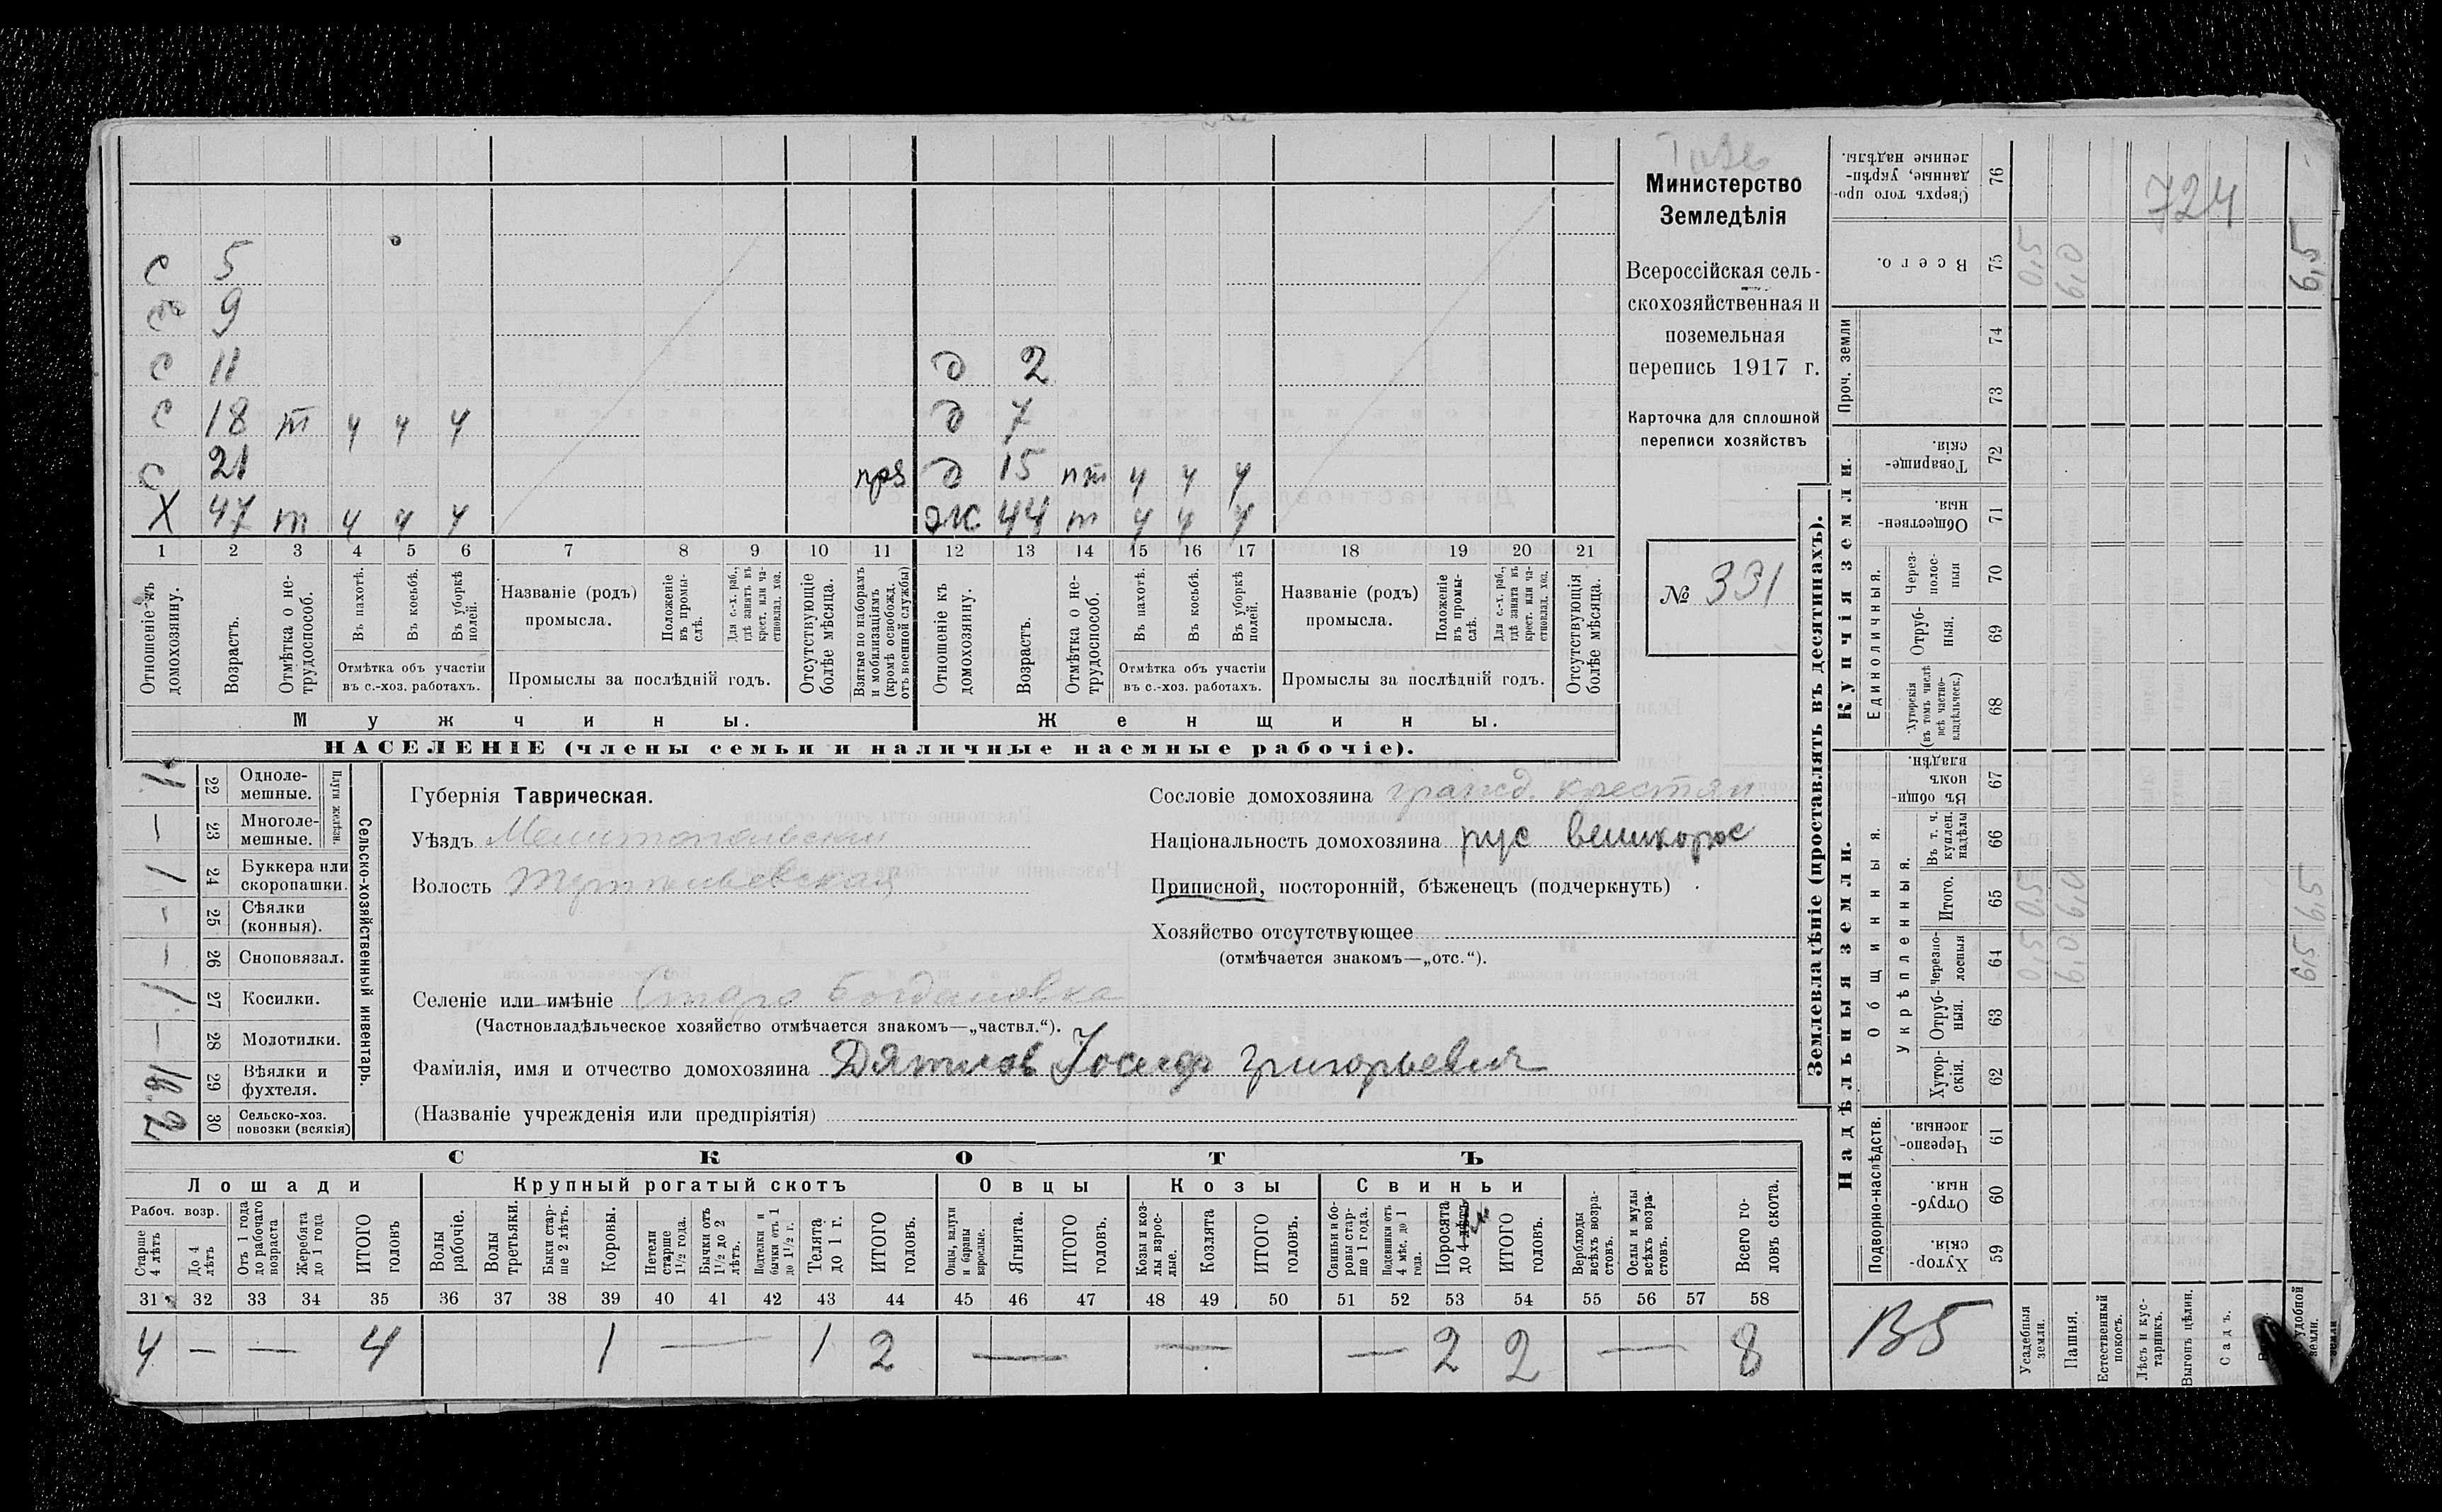 с 5
9
с 11 д 2
с 18 т ч ч ч д 7
с 21 прз д 15 пт ч ч ч
Х 47 т ч ч ч ж 44 т ч ч ч
1 2 3 4 5 6 7 8 9 10 11 12 13 14 15 16 17 18 19 20 21
Отношеніе къ домохозяину.
Возрастъ.
Отмѣтка о нетрудоспособ.
Въ пахотѣ.
Въ косьбѣ.
Въ уборкѣ полей.
Отмѣтка объ участіи
въ с.-хоз. работахъ.
Названіе (родъ)
промысла.
Положеніе въ промыслѣ.
Для с.-х. раб., гдѣ занятъ въ крест. или частновлад. хоз.
Промыслы за послѣдній годъ.
Отсутствующіе болѣе мѣсяца.
Взятые по наборамъ и мобилизаціямъ (кромѣ освобожд. отъ военной службы)
Отношеніе къ домохозяину.
Возрастъ.
Отмѣтка о нетрудоспособ.
Въ пахотѣ.
Въ косьбѣ.
Въ уборкѣ полей.
Отмѣтка объ участіи
въ с.-хоз. работахъ.
Названіе (родъ)
промысла.
Положеніе въ промыслѣ.
Для с.-х. раб., гдѣ занята въ крест. или частновлад. хоз.
Промыслы за послѣдній годъ.
Отсутствующія болѣе мѣсяца.
Мужчины. Женщины.
НАСЕЛЕНІЕ (члены семьи и наличные наемные рабочіе).
Министерство
Земледѣлія
Всероссійская сель-
скохозяйственная и
поземельная
перепись 1917 г.
Карточка для сплошной
переписи хозяйствъ
№ 331
Сельско-хозяйственный инвентарь.
Плуги желѣзн.
1 22 Одноле-
мешные.
— 23 Многоле-
мешные.
1 24 Буккера или
скоропашки.
— 25 Сѣялки
(конныя).
— 26 Сноповязал.
1 27 Косилки.
— 28 Молотилки.
29 Вѣялки и
фухтеля.
2 30 Сельско-хоз.
повозки (всякія)
Губернія Таврическая.
Уѣздъ Мелитопольскій
Волость
Селеніе или имѣніе Старо Богдановка
(Частновладѣльческое хозяйство отмѣчается знакомъ—„частвл.“).
Фамилія, имя и отчество домохозяина Дятлов Іосиф Григорьевич
(Названіе учрежденія или предпріятія)
Сословіе домохозяина гражд. крестян
Національность домохозяина рус великорос
Приписной, посторонній, бѣженецъ (подчеркнуть)
Хозяйство отсутствующее
(отмѣчается знакомъ—„отс.“).
СКОТЪ
Лошади Крупный рогатый скотъ Овцы Козы Свиньи
Рабоч. возр.
Старше 4 лѣтъ
До 4 лѣтъ
Отъ 1 года до рабочаго возраста
Жеребята до 1 года
ИТОГО головъ
Волы рабочіе.
Волы третьяки.
Быки старше 2 лѣтъ.
Коровы.
Нетели старше 1½ года.
Бычки отъ 1½ до 2 лѣтъ.
Подтелки и бычки отъ 1 до 1½ г.
Телята до 1 г.
ИТОГО головъ.
Овцы, валухи и бараны взрослые.
Ягнята.
ИТОГО головъ.
Козы и козлы взрослые.
Козлята
ИТОГО головъ.
Свиньи и боровы старше 1 года.
Подсвинки отъ 4 мѣс. до 1 года.
Поросята до 4 лѣтъ м
ИТОГО головъ.
Верблюды всѣхъ возрастовъ.
Ослы и мулы всѣхъ возрастовъ.
Всего головъ скота.
31 32 33 34 35 36 37 38 39 40 41 42 43 44 45 46 47 48 49 50 51 52 53 54 55 56 57 58
4 — — 4 1 — 1 2 — — — 2 2 — 8
Землевладѣніе (проставлять въ десятинахъ).
Купчія земли.
Надѣльныя земли.
Сверхъ того проданные, укрѣпленные надѣлы. 76
724
Всего. 75 0,5 6,0 6,5
Проч. земли 74
73
Товарищескія. 72
Общественныя. 71
Единоличныя.
Черезполосныя 70
Отрубныя. 69
Хуторскія (въ томъ числѣ всѣ частновладѣльческ.) 68
Общинныя.
Въ общиномъ владѣн. 67
Укрѣпленныя.
Въ т. ч. куплен. надѣлы 66
Итого. 65 0,5 6,0 6,5
Черезполосныя 64 0,5 6,0 6,5
Отрубныя. 63
Хуторскія. 62
Подворно-наслѣдств.
Черезполосныя. 61
Отрубныя. 60
Хуторскія 59
В5
Усадебныя земли.
Пашня.
Естественный покосъ.
Лѣсъ и кустарникъ.
Выгонъ цѣлин.
Садъ.
удобной земли.